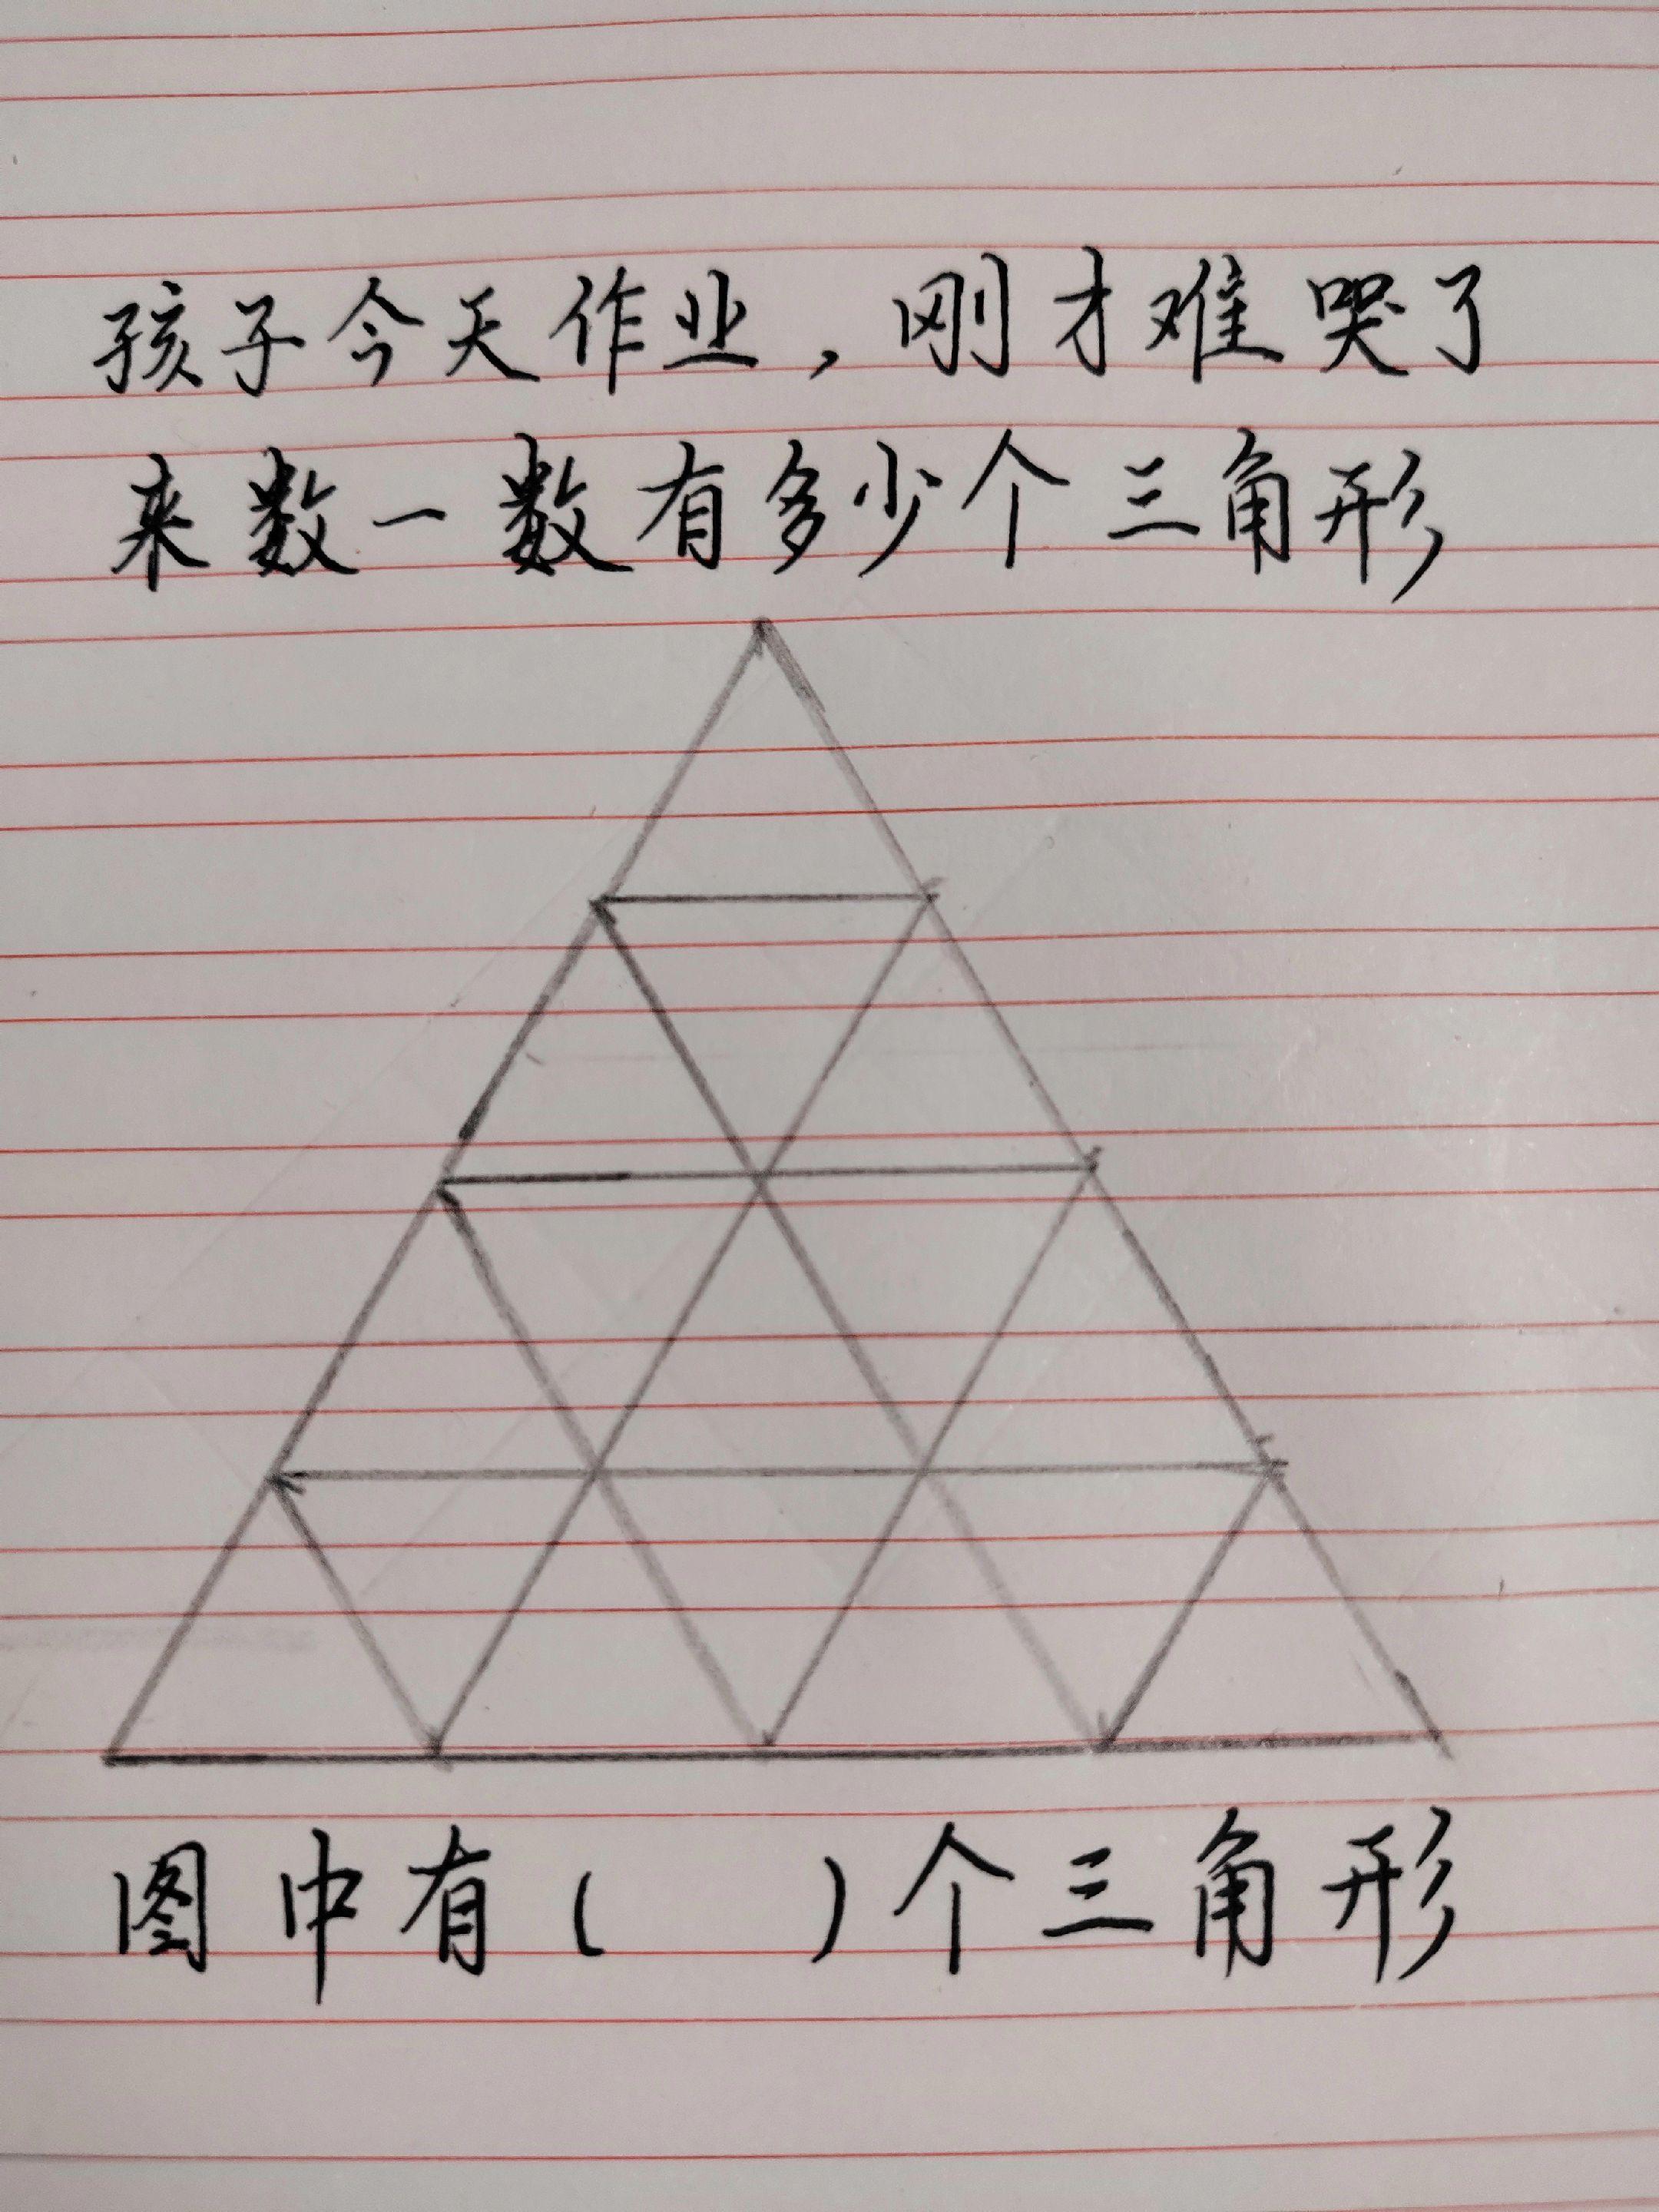 孩子今天作业，刚才难哭了
来数一数有多少个三角形
图中有（ ）个三角形